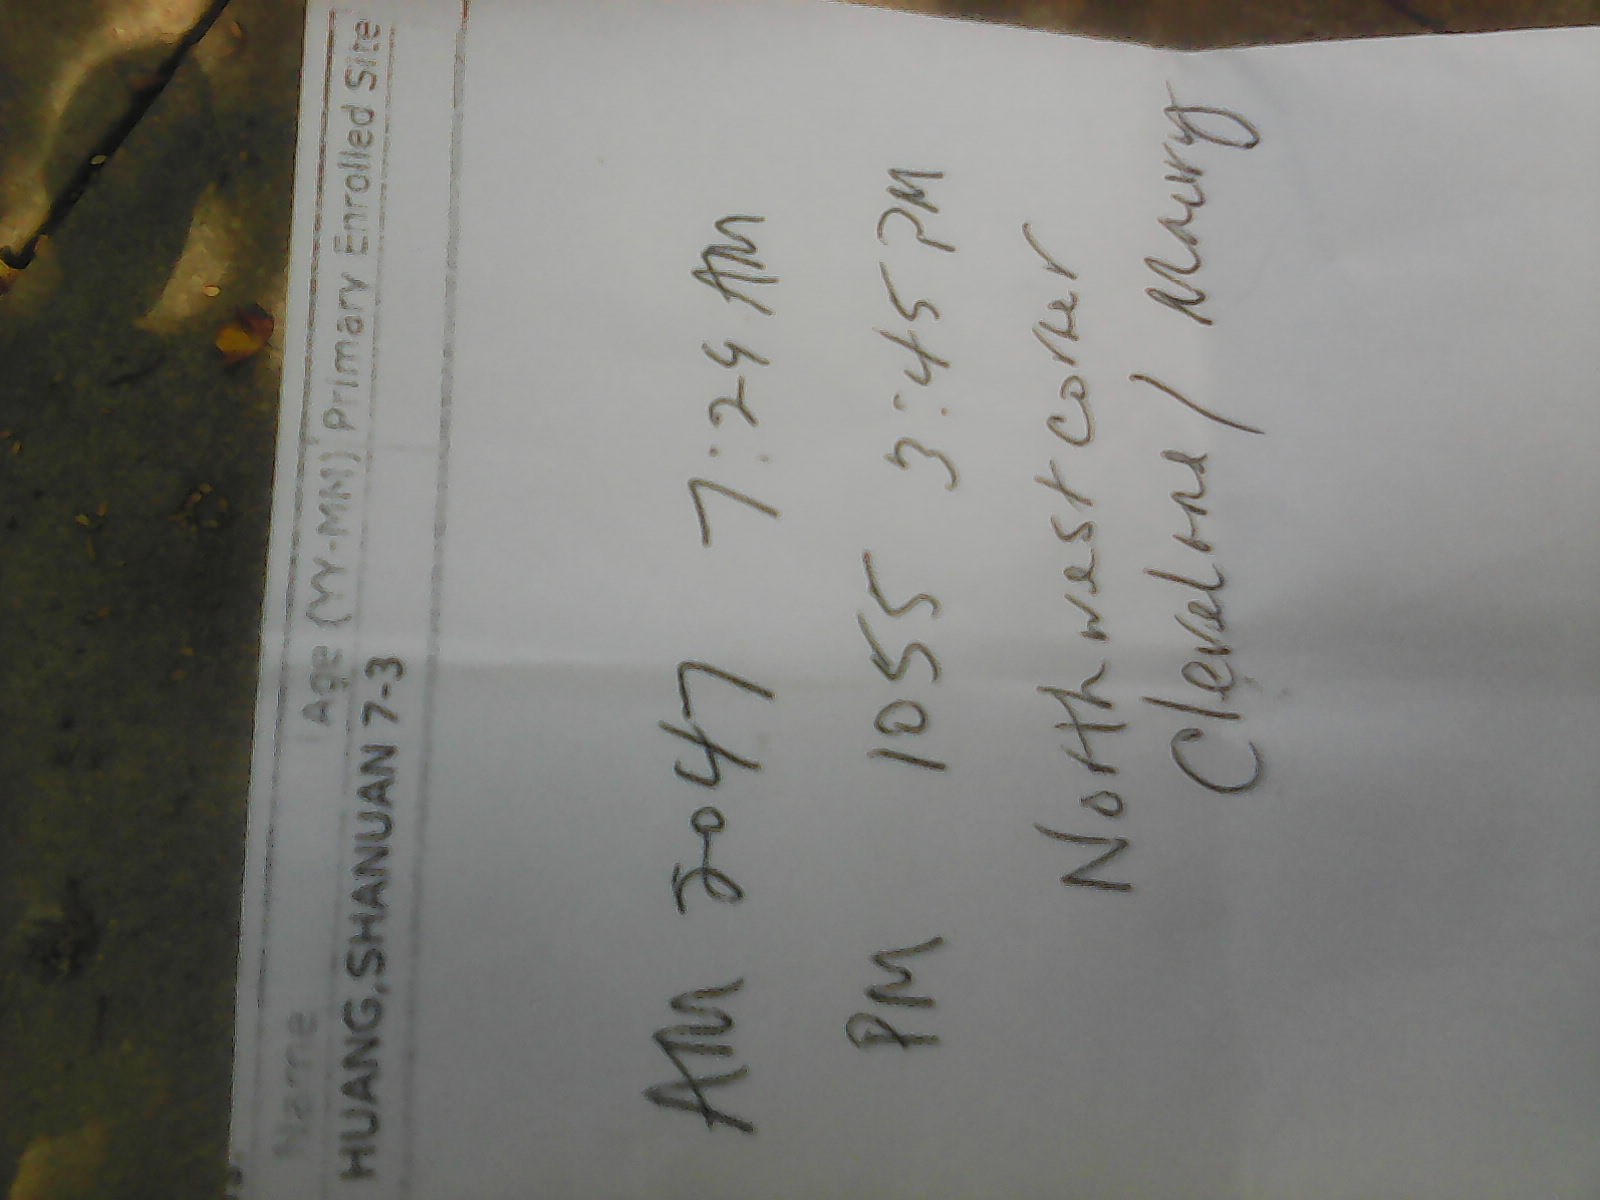 Name Age (YY-MM) Primary Enrolled Site
HUANG,SHANUAN 7-3
AM 2047 7:29 AM
PM 1055 3:45 PM
North west corner
/ Maury